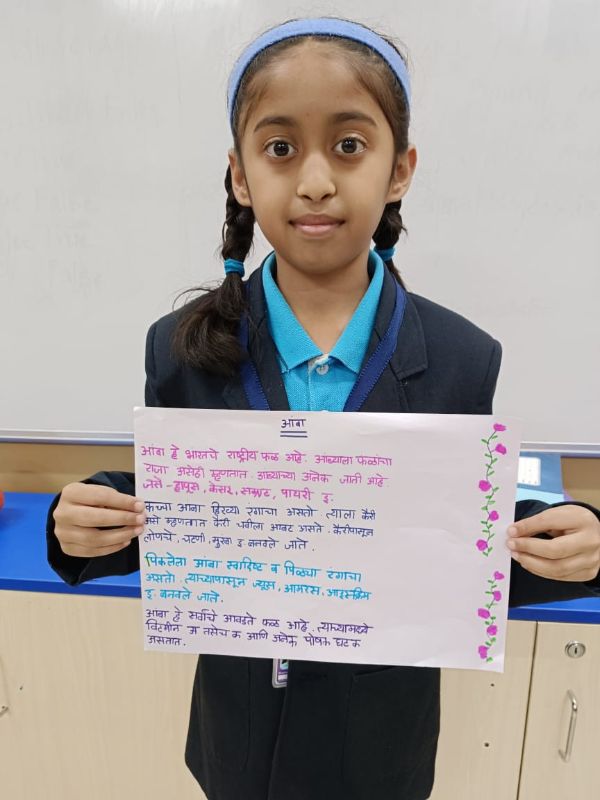 आंबा
आंबा हे भारतचे राष्ट्रीय फळ आहे. आंब्याला फळांचा
राजा असेही म्हणतात. आंब्याच्या अनेक जाती आहे.
जसे - हापूस, केसर, सम्राट, पायरी इ.
कच्चा आंबा हिरव्या रंगाचा असतो त्याला कैरी
असे म्हणतात कैरी चवीला आंबट असते. कैरीपासून
लोणचे, चटणी, मुरब्बा इ. बनवले जाते.
पिकलेला आंबा स्वादिष्ट व पिळ्या रंगाचा
असतो. त्याच्यापासून ज्यूस, आमरस, आइस्क्रिम
इ. बनवले जाते.
आंबा हे सर्वांचे आवडते फळ आहे. त्याच्यामध्ये
विटामीन अ तसेच क आणि अनेक पोषक घटक
असतात.